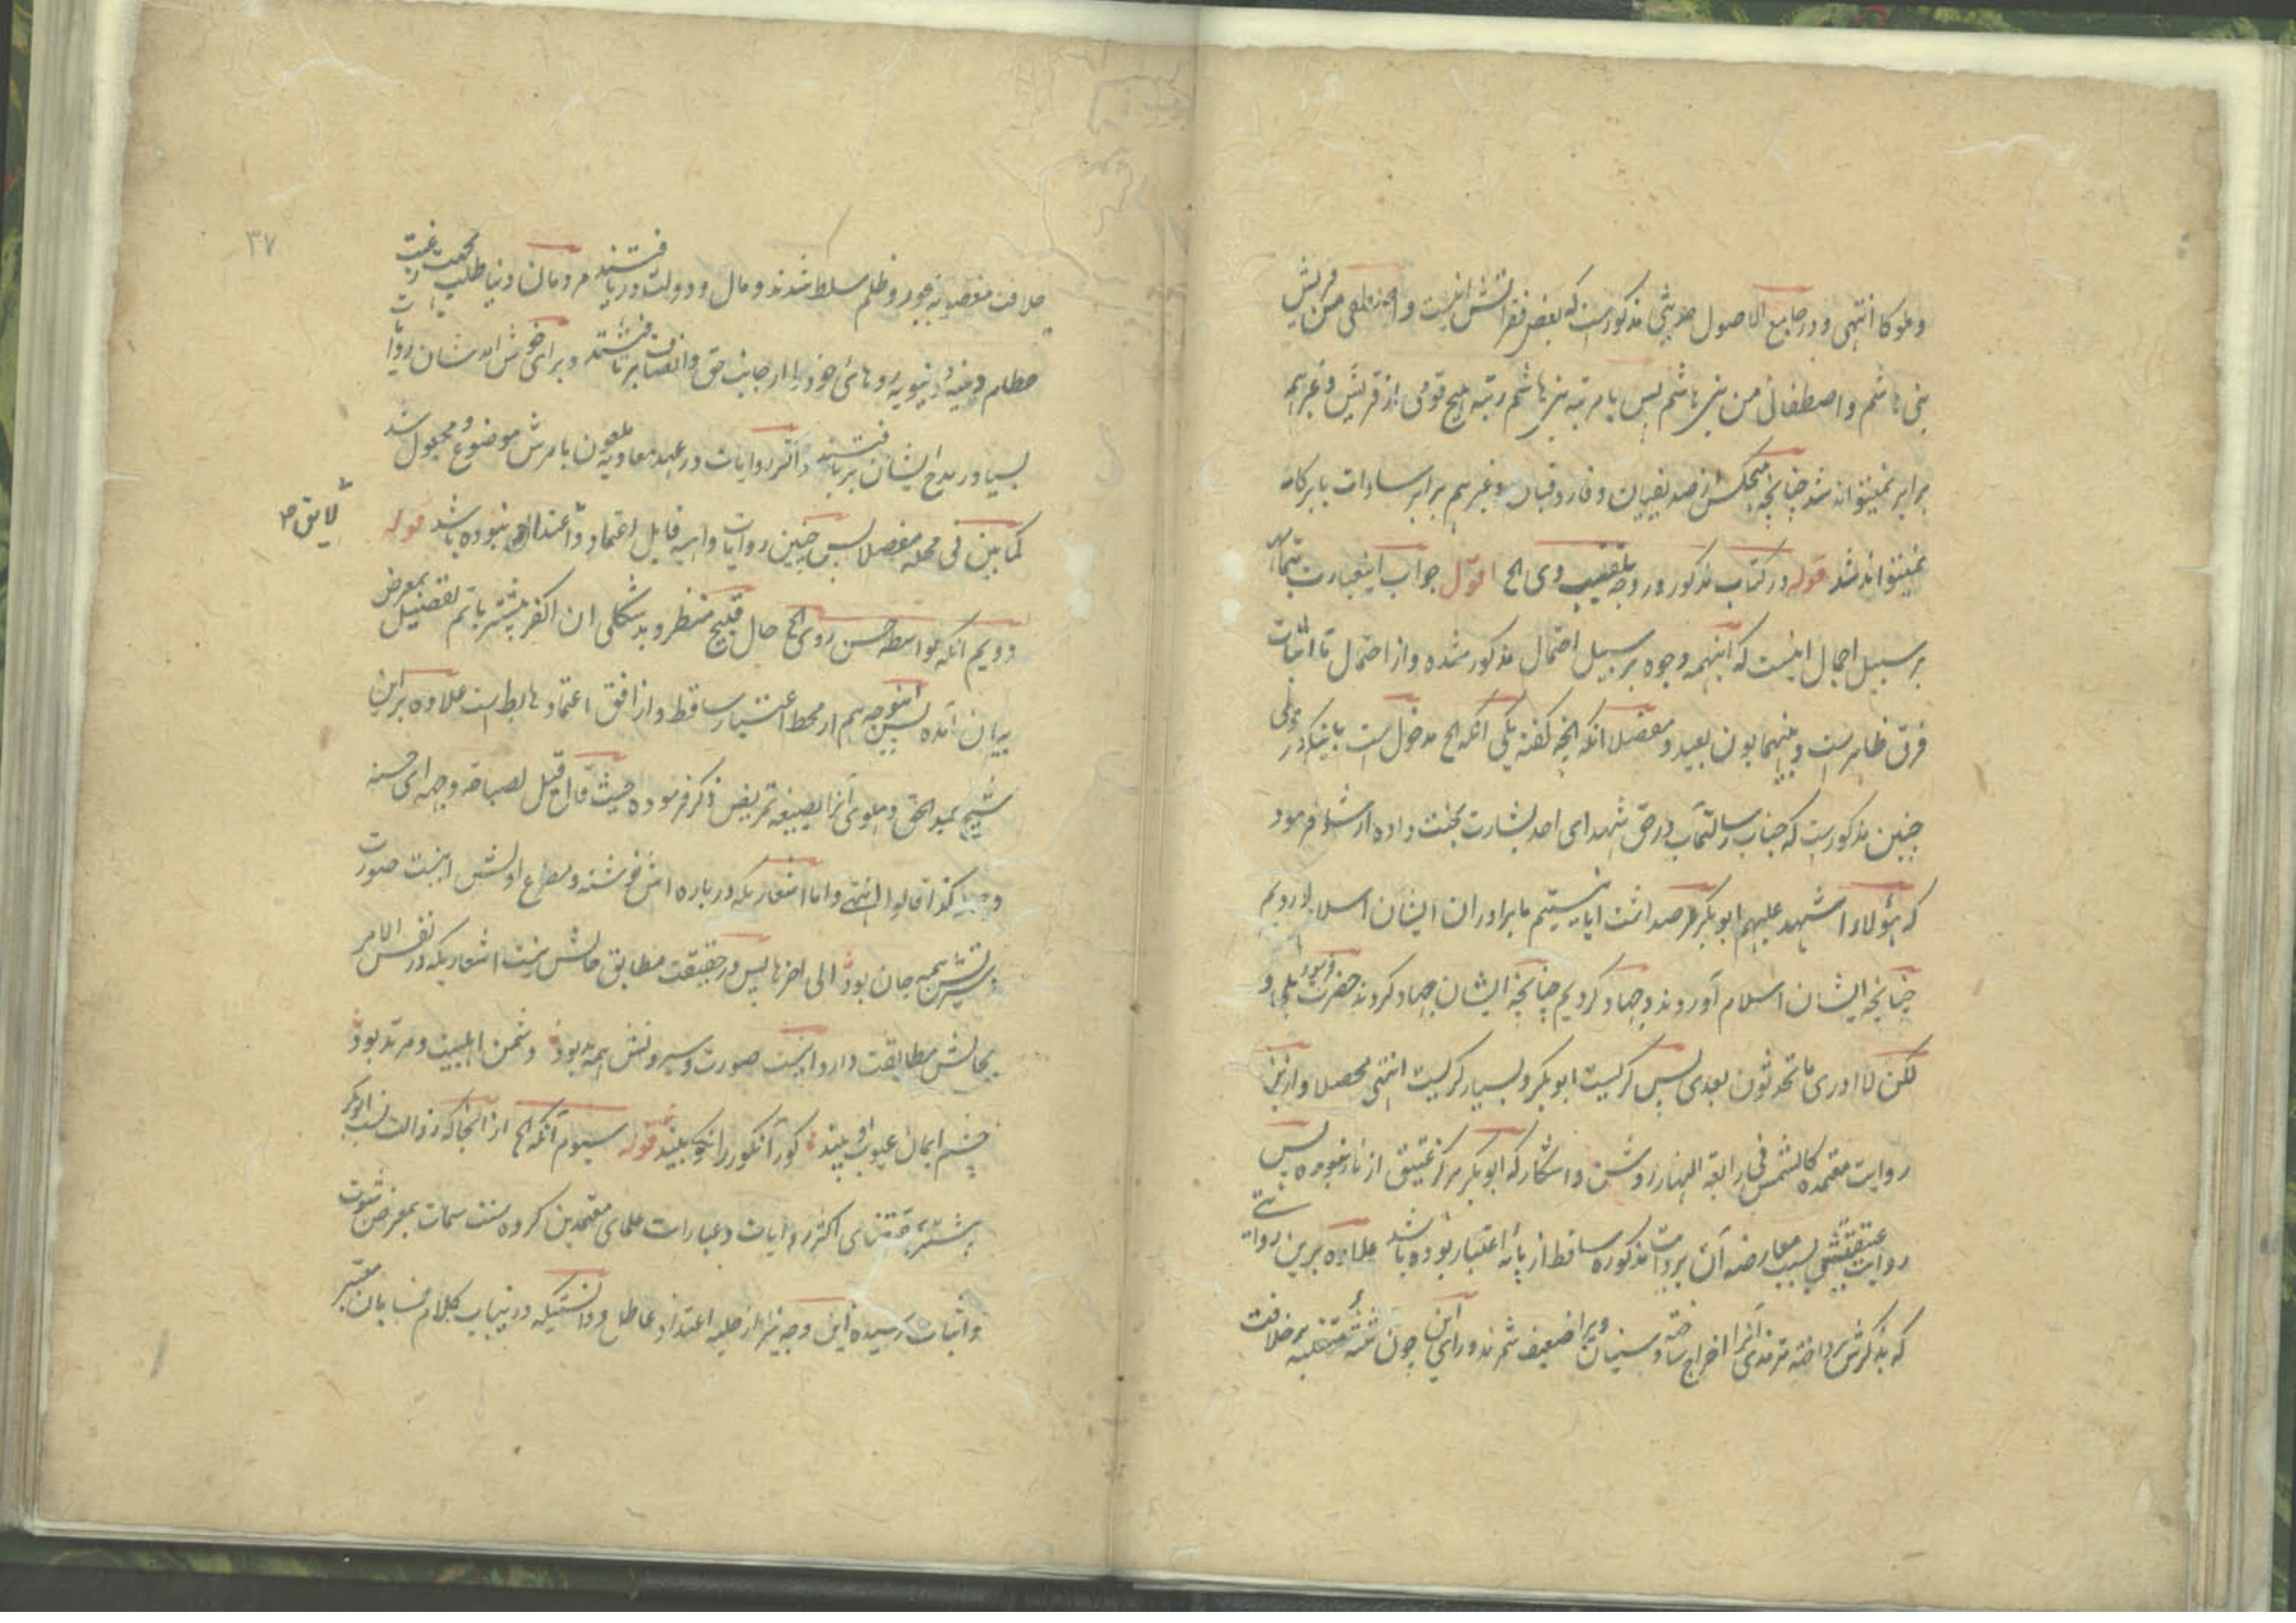 و ملوکا انتهی و در جامع الاصول حدیثی مذکورست که بعض فقراتش اینست و من قریش
بنی هاشم و اصطفانی من بنی هاشم پس با مرتبه بنی هاشم رتبه هیچ قومی از قریش و غیرهم
برابر نمیتواند شد چنانچه هیچکس از صدیقیان و فاروقیان و غیرهم برابر سادات بابرکات
نمیتواند شد قوله در کتاب مذکور در وجه تلقیب وی الخ اقول جواب اینعبارت بتمامه
بر سبیل اجمال اینست که اینهمه وجوه بر سبیل احتمال مذکور شده و از احتمال تا اثبات
فرق ظاهرست و بینهما بون بعید و مفصلا انکه انچه کفته یکی انکه الخ مدخول است باینکه در
چنین مذکورست که جناب رسالتمآب در حق شهدای احد بشارت بجنت داده ارشاد فرمود
که هؤلاء اشهد علیهم ابوبکر عرضداشت ایا نیستیم ما برادران ایشان اسلام اوردیم
چنانچه ایشان اسلام آوردند و جهاد کردیم چنانچه ایشان جهاد کردند حضرت فرمود بلی و
لکن لا ادری ما تحدثون بعدی پس کریست ابوبکر و بسیار کریست انتهی محصلا و ازین
روایت معتمده کالشمس فی رابعة النهار روشن و اشکار که ابوبکر هرکز عتیق از نار نبوده پس
روایت عتیقیتش بسبب معارضه آن بروایت مذکوره ساقط از پایه اعتبار بوده باشد علاوه برین روایتی
که بذکرش پرداخته ترمذی آنرا اخراج ساخته و سنیان ویرا ضعیف شمرند و رای این چون ثلثه متغلبه بر خلافت
۳۷
خلافت مغصوبه بجور و ظلم مسلط شدند و مال و دولت دریافتند مردمان دنیا طلب بجهت رغبت
حطام دنیه دنیویه روهای خود را از جانب حق و انصاف برتافتند و برای خوش امد شان روایات
بسیار در مدح ایشان بربافتند و اکثر روایات در عهد معاویه ملعون بامرش موضوع و مجعول شد
کما بین فی محله مفصلا پس چنین روایات واهیه قابل اعتماد و لایق اعتداد نبوده باشد قوله
دویم انکه بواسطه حسن روی الخ حال قبیح منظر و بد شکلی ان اکفر پیشتر باتم تفصیل بمعرض
بیان آمده پس اینوجه هم از محط اعتبار ساقط و از افق اعتماد هابط است علاوه براین
شیخ عبدالحق دهلوی آنرا بصیغه تمریض ذکر فرموده حیث قال قیل لصباحة وجهه ای حسنه
کذا قالوا انتهی و اما اشعاریکه در باره اش نوشته و مطلع اولش اینست صورت
و سیرتش همه جان بود الی اخرها پس در حقیقت مطابق حالش نیست اشعاریکه در نفس الامر
بحالش مطابقت دارد اینست صورت و سیرتش همه بد بود دشمن اهلبیت و مرتد بود
چشم ایمان عیوب او بیند کور آنکور را نکو بیند قوله سیوم آنکه الخ از آنجا که رذالت نسب ابوبکر
پیشتر بمقتضای اکثر روایات و عبارات علمای معتمدین کروه سنت سمات بمعرض ثبوت
و اثبات رسیده این وجه نیز از حلیه اعتداد عاطل و دانستیکه درینباب کلام نسابان معتبر
لایق ص